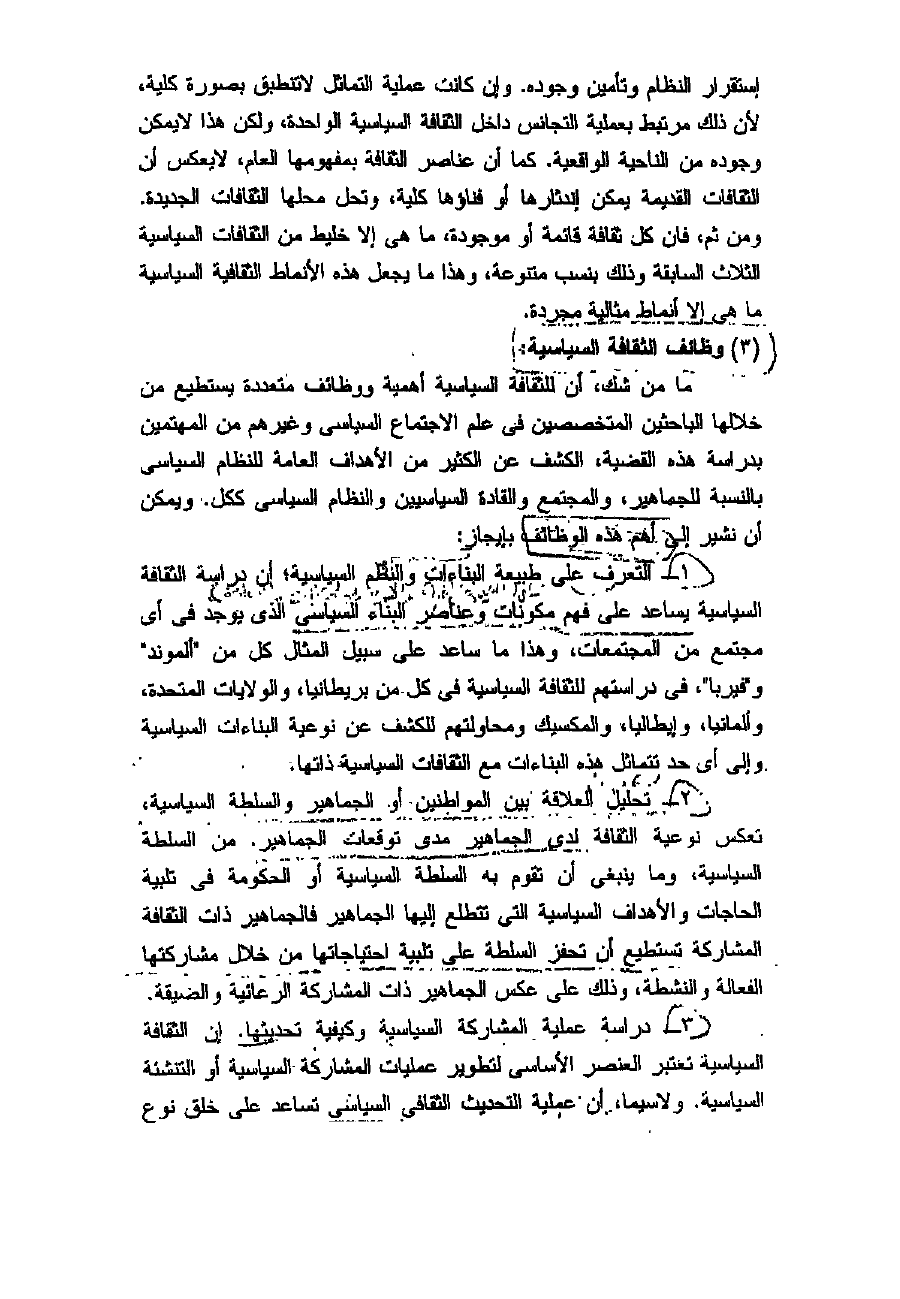 إستقرار النظام وتأمين وجوده. وإن كانت عملية التماثل لاتنطبق بصورة كلية،
لأن ذلك مرتبط بعملية التجانس داخل الثقافة السياسية الواحدة، ولكن هذا لايمكن
وجوده من الناحية الواقعية. كما أن عناصر الثقافة بمفهومها العام، لايعكس أن
الثقافات القديمة يمكن إندثارها أو فناؤها كلية، وتحل محلها الثقافات الجديدة.
ومن ثم، فان كل ثقافة قائمة أو موجودة، ما هى إلا خليط من الثقافات السياسية
الثلاث السابقة وذلك بنسب متنوعة، وهذا ما يجعل هذه الأنماط الثقافية السياسية
ما هى إلا أنماط مثالية مجردة.
(٣) وظائف الثقافة السياسية:
ما من شك، أن للثقافة السياسية أهمية ووظائف متعددة يستطيع من
خلالها الباحثين المتخصصين فى علم الاجتماع السياسى وغيرهم من المهتمين
بدراسة هذه القضية، الكشف عن الكثير من الأهداف العامة للنظام السياسى
بالنسبة للجماهير، والمجتمع والقادة السياسيين والنظام السياسى ككل. ويمكن
أن نشير إلى أهم هذه الوظائف بإيجاز:
١- التعرف على طبيعة البناءات والنظم السياسية؛ إن دراسة الثقافة
السياسية يساعد على فهم مكونات وعناصر البناء السياسى الذى يوجد فى أى
مجتمع من المجتمعات، وهذا ما ساعد على سبيل المثال كل من "ألموند"
و"فيربا"، فى دراستهم للثقافة السياسية فى كل من بريطانيا، والولايات المتحدة،
وألمانيا، وإيطاليا، والمكسيك ومحاولتهم للكشف عن نوعية البناءات السياسية
وإلى أى حد تتماثل هذه البناءات مع الثقافات السياسية ذاتها.
٢- تحليل العلاقة بين المواطنين أو الجماهير والسلطة السياسية،
تعكس نوعية الثقافة لدى الجماهير مدى توقعات الجماهير. من السلطة
السياسية، وما ينبغى أن تقوم به السلطة السياسية أو الحكومة فى تلبية
الحاجات والأهداف السياسية التى تتطلع إليها الجماهير فالجماهير ذات الثقافة
المشاركة تستطيع أن تحفز السلطة على تلبية احتياجاتها من خلال مشاركتها
الفعالة والنشطة، وذلك على عكس الجماهير ذات المشاركة الرعائية والضيقة.
٣- دراسة عملية المشاركة السياسية وكيفية تحديثها. إن الثقافة
السياسية تعتبر العنصر الأساسى لتطوير عمليات المشاركة السياسية أو التنشئة
السياسية. ولاسيما، أن عملية التحديث الثقافى السياسى تساعد على خلق نوع